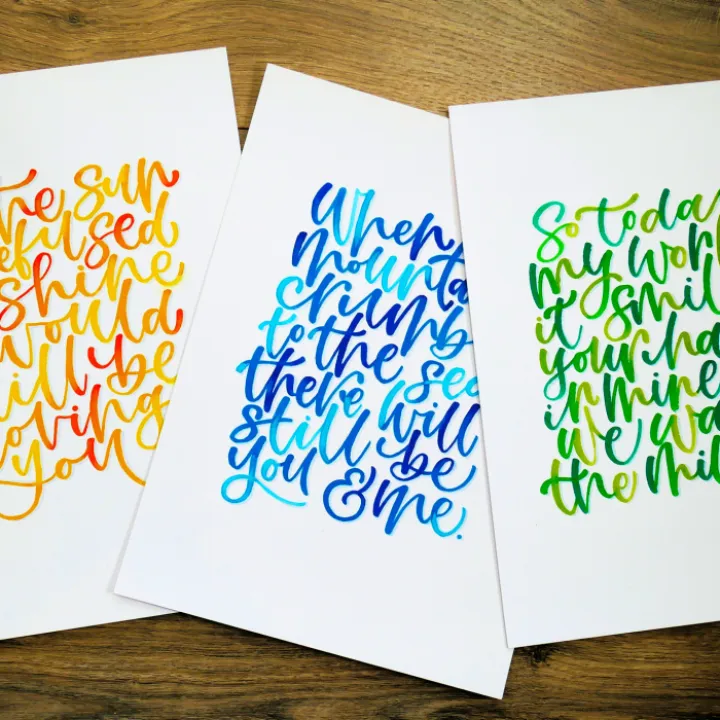 the sun
efused
shine
would
ill be
oving
you
When
mounta
crumb
to the sea
there
still will be
you & me.
So toda
my worl
it smil
your ha
in mine
we wa
the mil